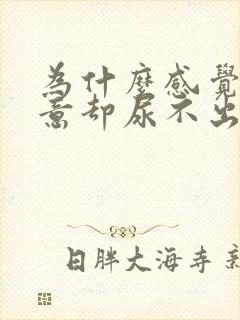 为什麼感覺
意却尿不出
日胖大海寺新